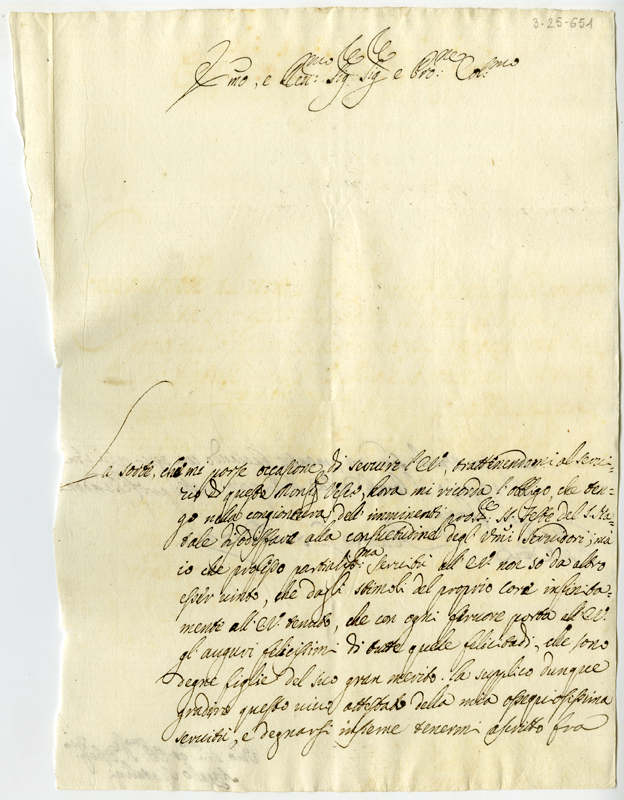 3-25-651
Ill:mo, e Rev:mo Sig: Sig: e Pro:ne Col:mo
La sorte, che mi porse occasione di servire V.S., trattenendomi al servi-
zio di questo Mons:r Vesc:o, hora mi ricorda l'obligo, che ten-
go nella congiontura dell'imminenti pros:e S. Feste del S. Na-
tale di sodisfare alla consuetudine degl'umi servidori; ma
io che professo partialis:ma servitù all' V.S. non so da altro
esser vinto, che dagli stimoli del proprio core infinita-
mente all' V.S. tenuto, che con ogni fervore porta all' V.S.
gl'auguri felicissimi di tutte quelle felicitadi, che sono
degne figlie del suo gran merito. La supplico dunque
gradire questo vivo attestato della mia ossequiosissima
servitù, e degnarsi insieme tenermi ascritto fra